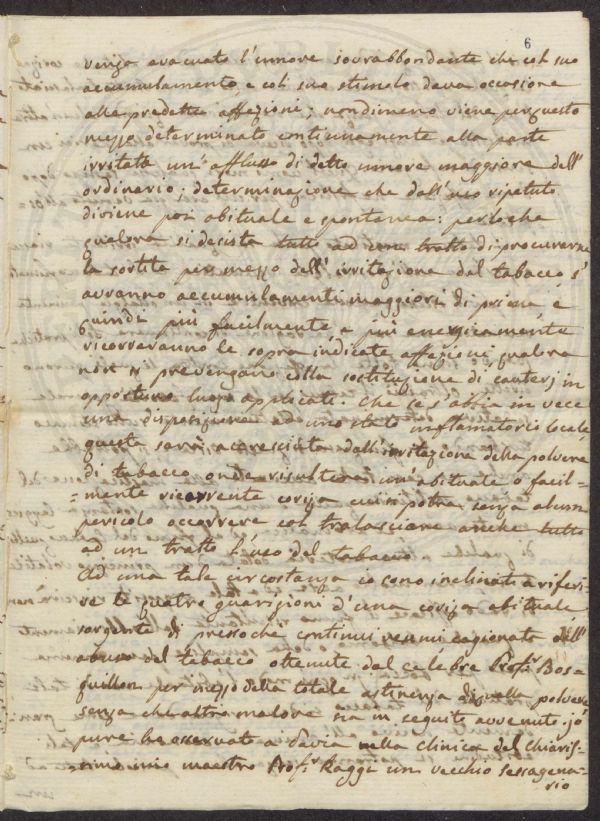 6
venga evacuato l'umore sovrabbondante che col suo
accumulamento e col suo stimolo dava occasione
alle predette affezioni; nondimeno viene per questo
mezzo determinato continuamente alla parte
irritata un' afflusso di detto umore maggiore dell'
ordinario; determinazione che dall'uso ripetuto
diviene poi abituale e spontanea: perloche
qualora si desista tutto ad un tratto di procurarne
la sortita per mezzo dell' irritazione del tabacco s'
avranno accumulamenti maggiori di prima e
quindi più facilmente e più energicamente
ricorreranno le sopra indicate affezioni qualora
non si prevengano colla sostituzione di cauterj in
opportuno luogo applicati. Che se s'abbia in vece
una disposizione ad uno stato inflamatorio locale
questa sarà accresciuta dall'irritazione della polvere
di tabacco onde risulterà un'abituale o facil-
=mente ricorrente coriza cui si potrà senza alcun
pericolo occorrere col tralasciare anche tutto
ad un tratto l'uso del tabacco.
Ad una tale circostanza io sono inclinato a riferi-
re le quatro guarigioni d'una coriza abituale
sorgente di pressoche continui cagionata dall'
abuso del tabacco ottenute dal celebre Prof.r Bos=
quillon per mezzo della totale astinenza di quella polvere
senza che altro malore sia in seguito avvenuto; io
pure ho osservato a Pavia nella clinica del chiaris-
simo mio maestro Prof.r Raggi un vecchio sessagena-
rio